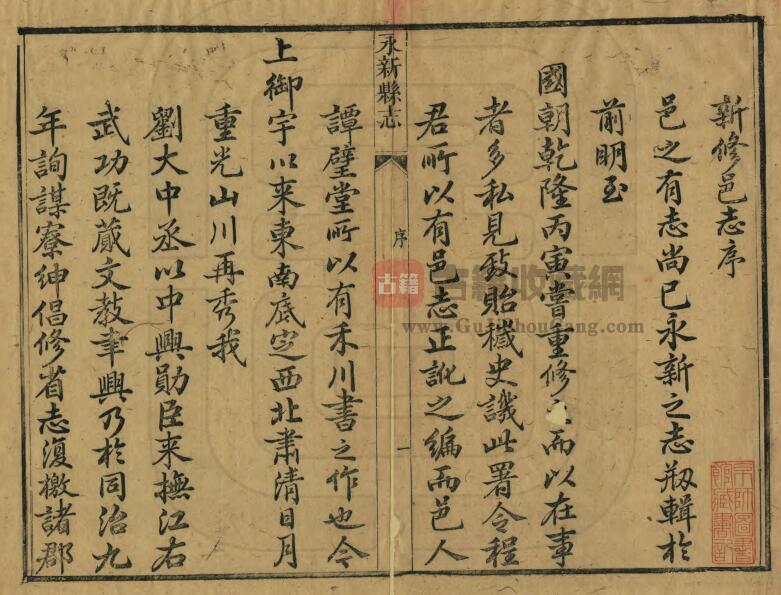 新修邑志序
邑之有志尚已永新之志剏輯於
前明至
國朝乾隆丙寅嘗重修之而以在事
者多私見致貽穢史譏此署令程
君所以有邑志正訛之編而邑人
永新縣志
序
一
譚璧堂所以有禾川書之作也今
上御宇以来東南底定西北肅清日月
重光山川再秀我
劉大中丞以中興勛臣来撫江右
武功既蕆文教聿興乃於同治九
年詢謀寮紳倡修省志復檄諸郡
京師圖書館藏書記
古籍
古籍收藏網
www.Gujishoucang.com